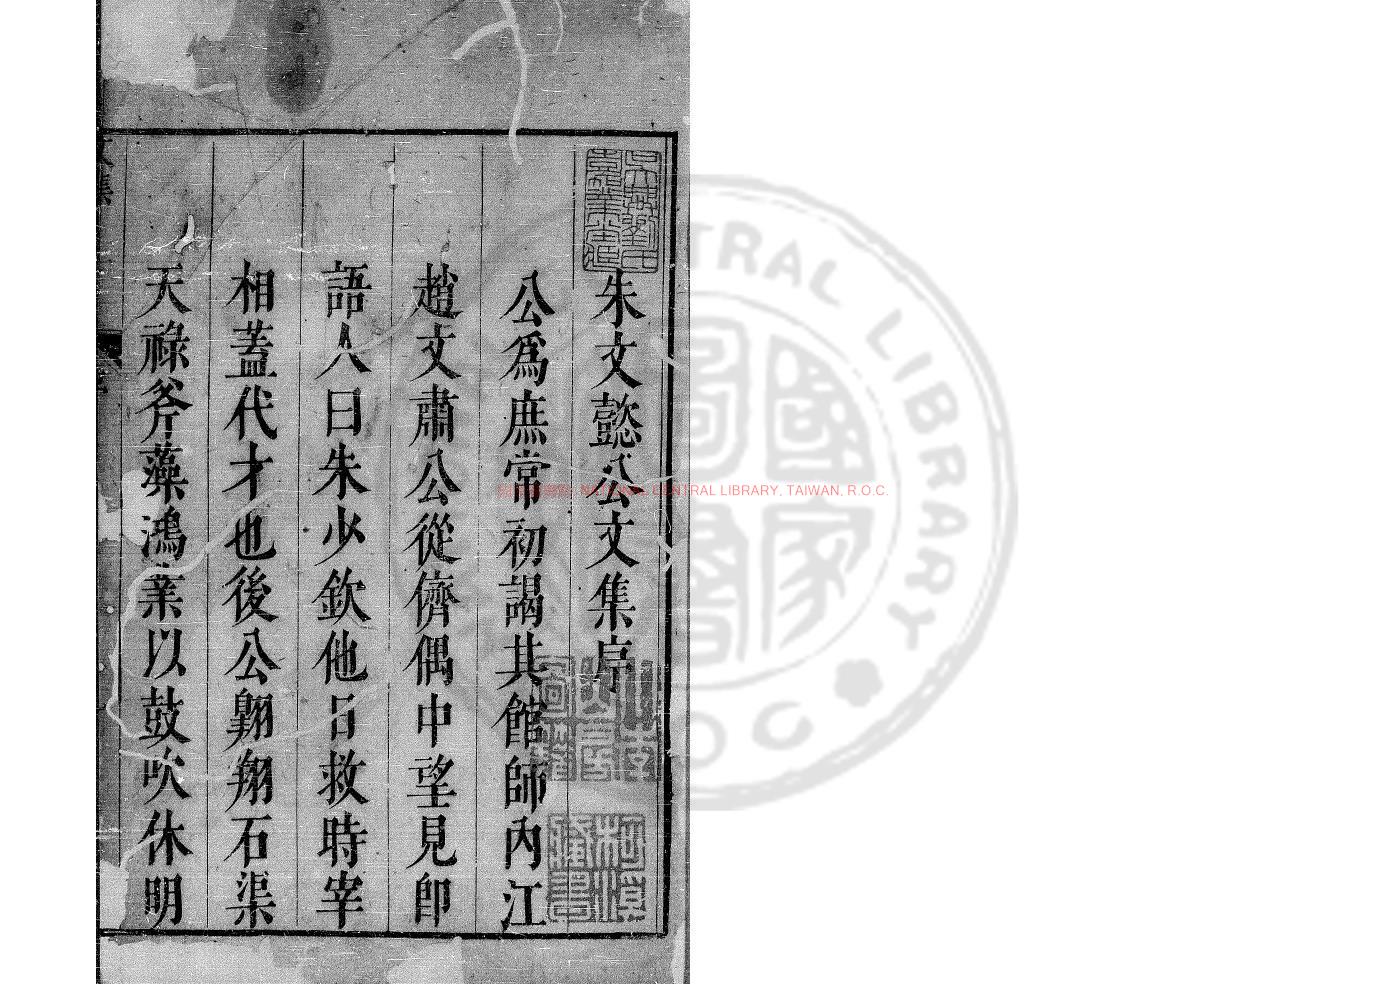 朱文懿公文集序
公爲庶常初謁其館師內江
趙文肅公從儕偶中望見卽
語人曰朱少欽他日救時宰
相蓋代才也後公翺翔石渠
天祿斧藻鴻業以鼓吹休明
文集
NATIONAL CENTRAL LIBRARY, TAIWAN, R.O.C.
CENTRAL LIBRARY
國家圖書